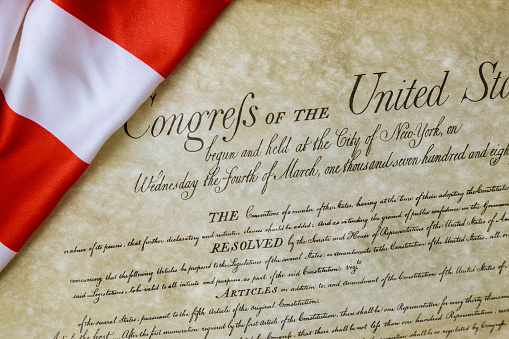 Congreſs OF THE United Sta
begun and held at the City of New-York, on
Wednesday the Fourth of March, one thousand seven hundred and eigh
THE Conventions of a number of the States, having at the time of their adopting the Constitution
n abuse of its powers, that further declaratory and restrictive clauses should be added: And as extending the ground of public confidence in the Government
RESOLVED by the Senate and House of Representatives of the United States of Am
concurring that the following Articles be proposed to the Legislatures of the several States, as amendments to the Constitution of the United States, all or
said Legislatures, to be valid to all intents and purposes, as part of the said Constitution; vizt.
ARTICLES in addition to, and Amendment of the Constitution of the United States of
of the several States, pursuant to the fifth Article of the original Constitution.
Article the first... After the first enumeration required by the first Article of the Constitution, there shall be one Representative for every thirty thousand
that there shall be not less than one hundred Representatives, nor
shall be so regulated by Congress